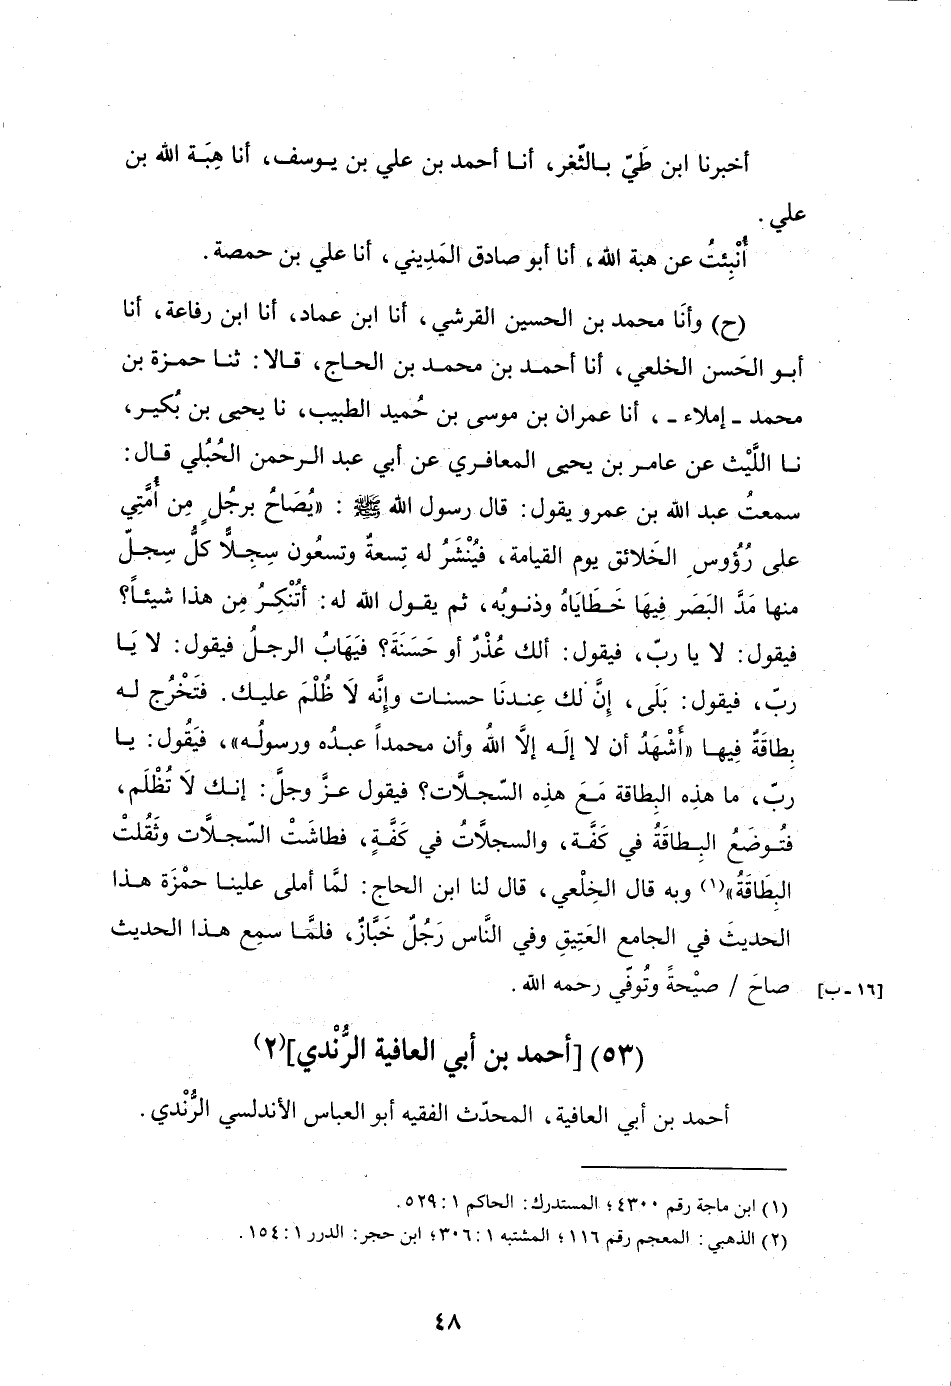 أخبرنا ابن طَيّ بالثّغر، أنا أحمد بن علي بن يوسف، أنا هِبَة الله بن
علي.
أُنْبِئتُ عن هبة الله، أنا أبو صادق المَدِيني، أنا علي بن حمصة.
(ح) وأنَا محمد بن الحسين القرشي، أنا ابن عماد، أنا ابن رفاعة، أنا
أبو الحَسن الخلعي، أنا أحمد بن محمد بن الحاج، قالا: ثنا حمزة بن
محمد ـ إملاء ـ، أنا عمران بن موسى بن حُميد الطبيب، نا يحيى بن بُكير،
نا اللَّيْث عن عامر بن يحيى المعافري عن أبي عبد الرحمن الحُبُلي قال:
سمعتُ عبد الله بن عمرو يقول: قال رسول الله ﷺ: «يُصَاحُ برجُلٍ مِن أُمَّتِي
على رُؤُوسِ الخَلائق يوم القيامة، فيُنْشَرُ له تِسعةٌ وتسعُون سِجِلاًّ كلُّ سِجلّ
منها مَدَّ البَصَر فِيهَا خَطَايَاهُ وذنوبُه، ثم يقول الله له: أتُنْكِرُ مِن هذا شيئاً؟
فيقول: لا يا ربّ، فيقول: ألك عُذْرٌ أو حَسَنَة؟ فيَهَابُ الرجلُ فيقول: لا يَا
ربّ، فيقول: بَلَى، إنَّ لك عِندنَا حسنات وإنَّه لَا ظُلْمَ عليك. فتَخْرُج له
بِطاقَةٌ فيها «أَشْهَدُ أن لا إلَه إلَّا اللهُ وأن محمداً عبدُه ورسولُه»، فيَقُول: يا
ربّ، ما هذه البِطاقة مَعَ هذه السّجلاَّت؟ فيقول عزَّ وجلَّ: إنك لَا تُظْلَم،
فتُوضَعُ البِطاقَةُ في كَفَّة، والسجلاَّتُ في كَفَّةٍ، فطاشَتْ السّجلاَّت وثَقُلتْ
البِطَاقَةُ»(١) وبه قال الخِلْعي، قال لنا ابن الحاج: لمَّا أملى علينا حمْزَة هذا
الحديثَ في الجامع العَتِيقِ وفي النَّاس رَجُلٌ خَبَّازٌ، فلمَّا سمِع هذا الحديث
صاحَ / صيْحةً وتُوفّي رحمه الله. [١٦ ـ ب]
(٥٣) [أحمد بن أبي العافية الرُّنْدي](٢)
أحمد بن أبي العافية، المحدّث الفقيه أبو العباس الأندلسي الرُّنْدي.
(١) ابن ماجة رقم ٤٣٠٠؛ المستدرك: الحاكم ١: ٥٢٩.
(٢) الذهبي: المعجم رقم ١١٦؛ المشتبه ١: ٣٠٦؛ ابن حجر: الدرر ١: ١٥٤.
٤٨